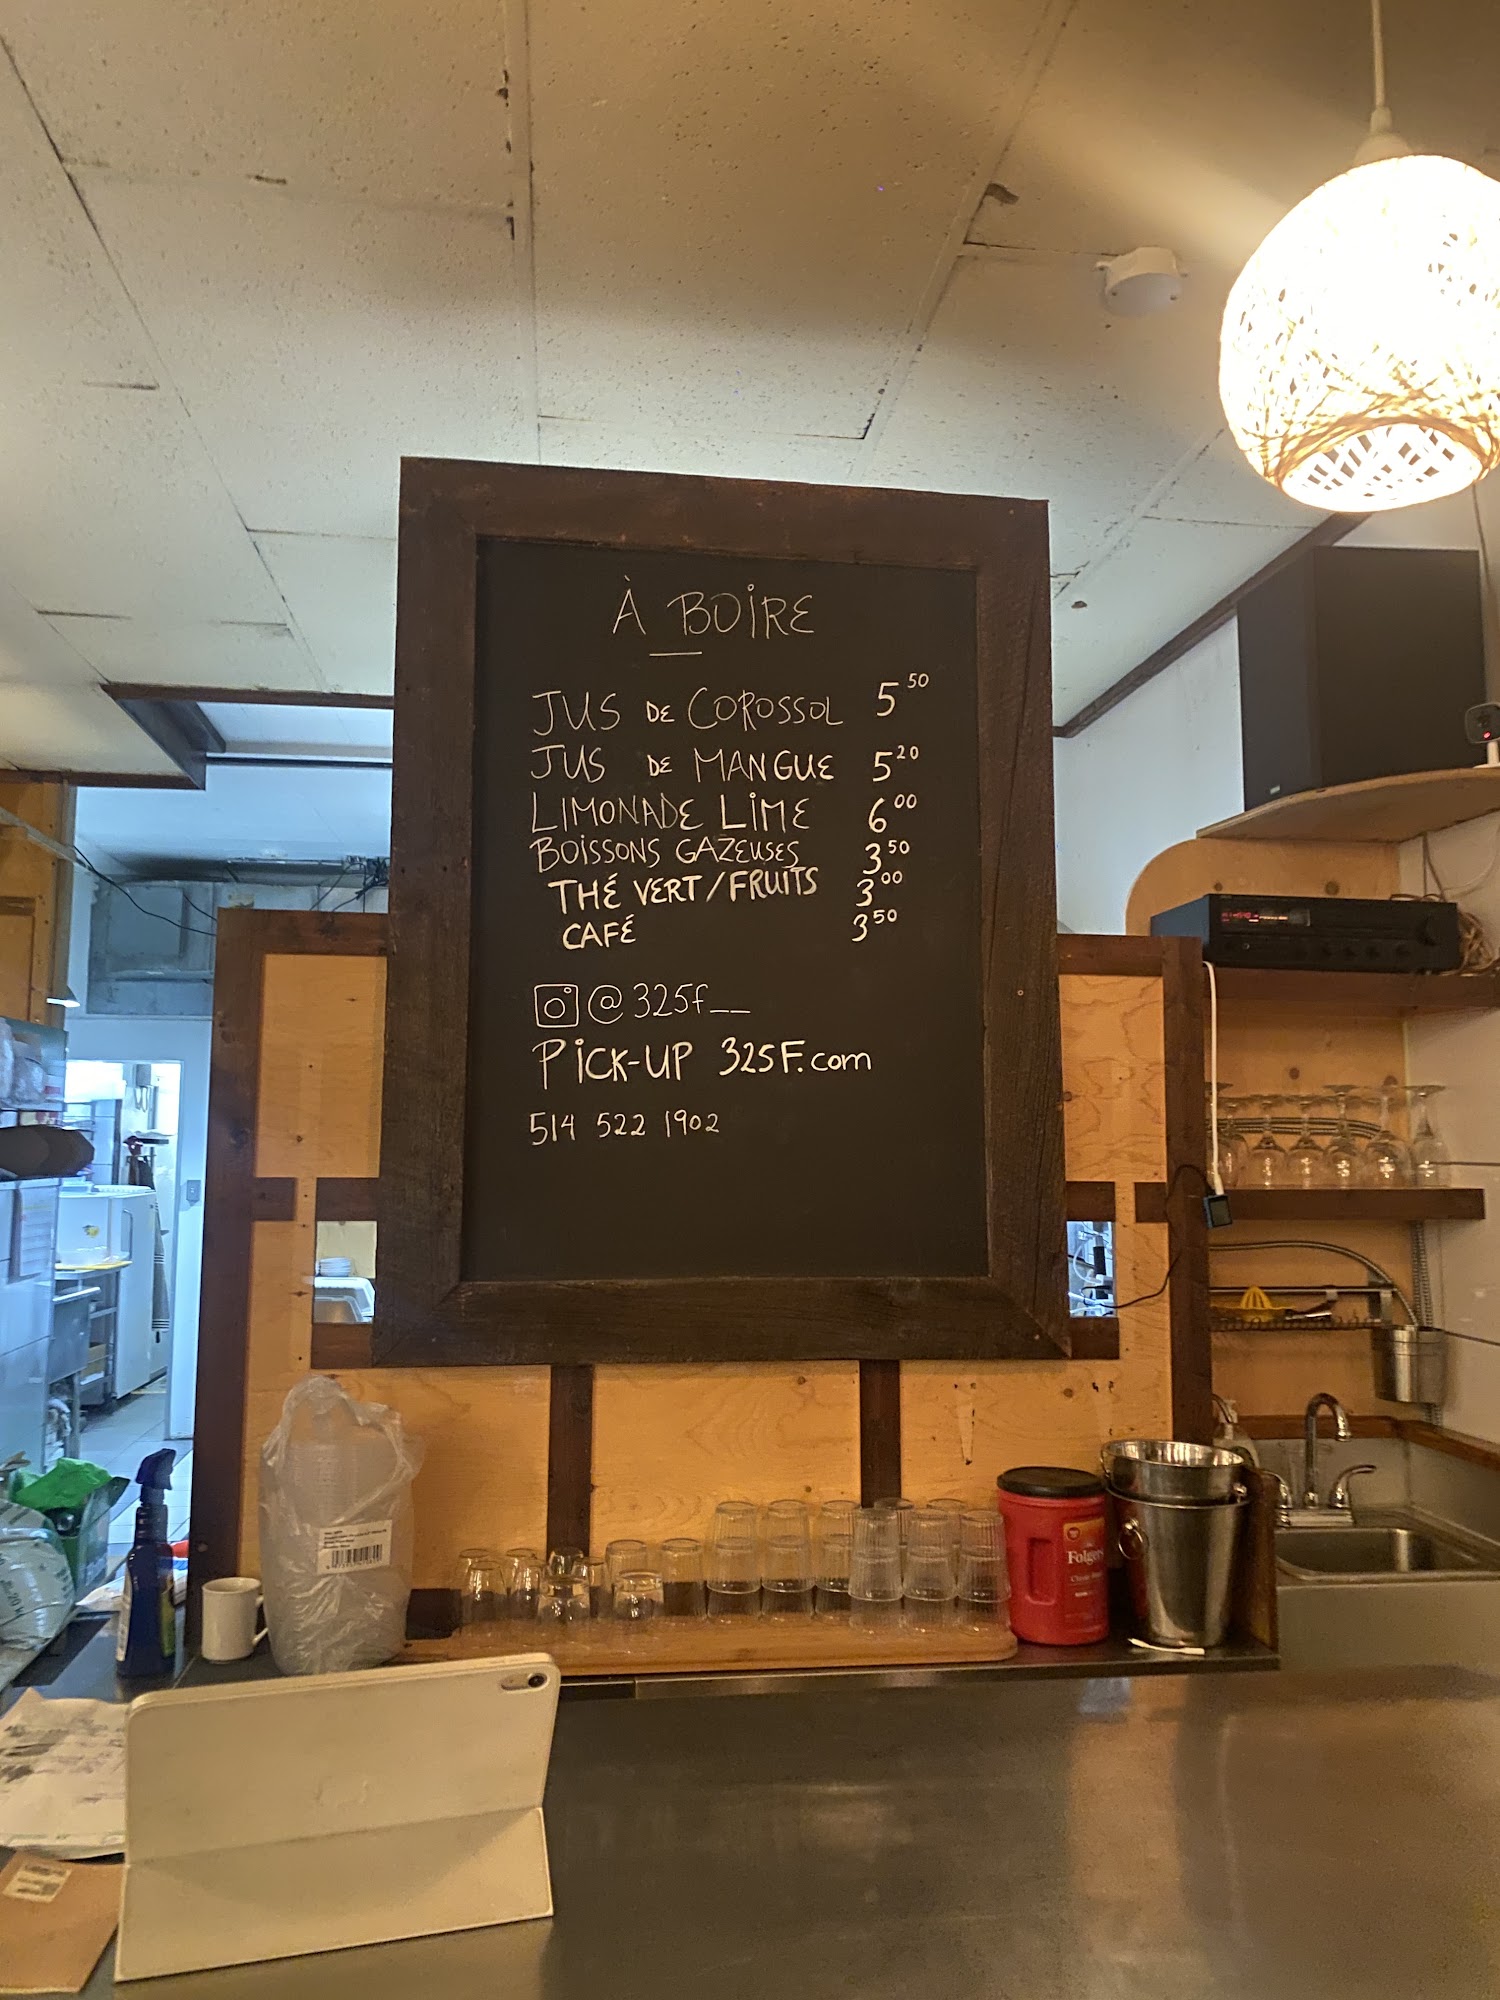 À BOIRE
JUS DE COROSSOL 5 50
JUS DE MANGUE 5 20
LIMONADE LIME 6 00
BOISSONS GAZEUSES 3 50
THÉ VERT/FRUITS 3 00
CAFÉ 3 50
@325f__
PICK-UP 325F.com
514 522 1902
Folgers